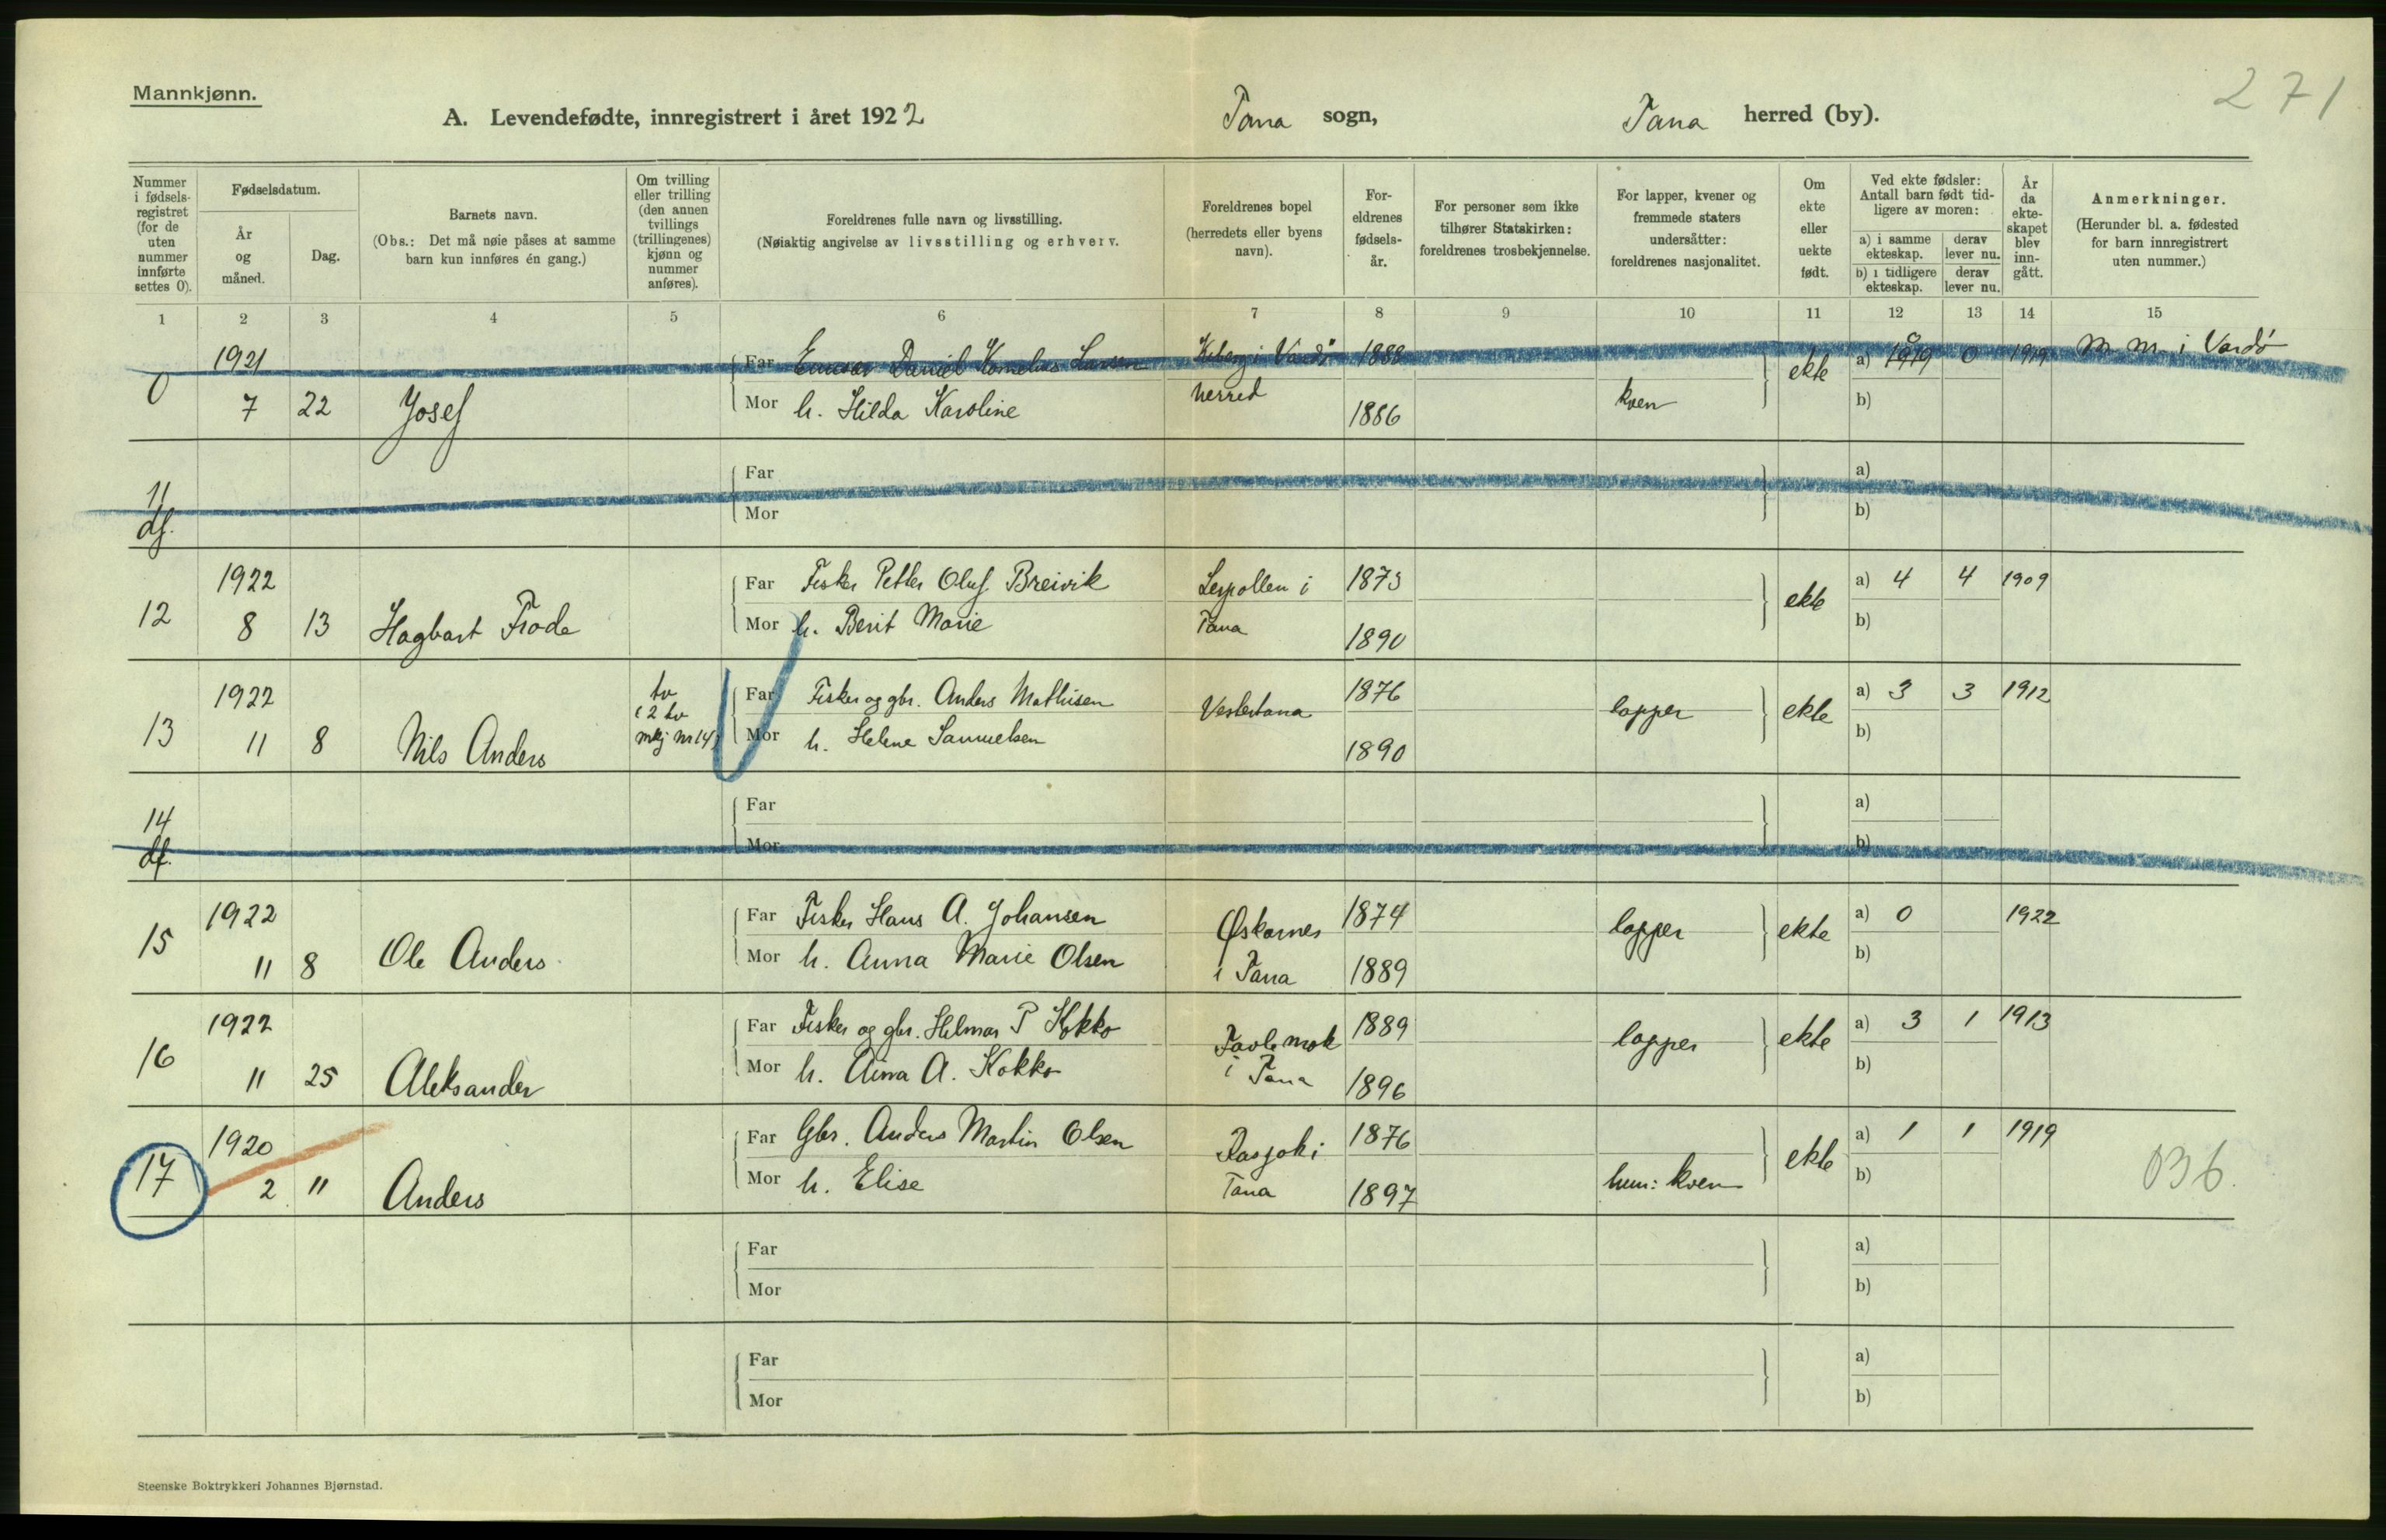 271
Mannkjønn.
A. Levendefødte, innregistrert i året 1922 Tana sogn, Tana herred (by).
Nummer i fødsels-registret (for de uten nummer innførte settes 0).
Fødselsdatum.
År og måned.
Dag.
Barnets navn.
(Obs.: Det må nøie påses at samme barn kun innføres én gang.)
Om tvilling eller trilling (den annen tvillings (trillingenes) kjønn og nummer anføres).
Foreldrenes fulle navn og livsstilling.
(Nøiaktig angivelse av livsstilling og erhverv.
Foreldrenes bopel (herredets eller byens navn).
For-eldrenes fødsels-år.
For personer som ikke tilhører Statskirken: foreldrenes trosbekjennelse.
For lapper, kvener og fremmede staters undersåtter: foreldrenes nasjonalitet.
Om ekte eller uekte født.
Ved ekte fødsler: Antall barn født tid-ligere av moren:
a) i samme ekteskap. derav lever nu.
b) i tidligere ekteskap. derav lever nu.
År da ekte-skapet blev inn-gått.
Anmerkninger.
(Herunder bl. a. fødested for barn innregistrert uten nummer.)
1 2 3 4 5 6 7 8 9 10 11 12 13 14 15
1921 Far Daniel Kornelius Larsen Kiberg i Vardø 1888 ekte a) 0 1919 M. M. i Vardø
0 7 22 Josef Mor h. Hilda Karoline herred 1886 kven b)
11 Far a)
df. Mor b)
1922 Far Fisker Petter Oluf Breivik Leirpollen i 1873 ekte a) 4 4 1909
12 8 13 Hagbart Frode Mor h. Berit Marie Tana 1890 b)
1922 tv (2 tv mkj nr 14) Far Fisker og gbr. Anders Mathisen Vestertana 1876 lapper ekte a) 3 3 1912
13 11 8 Nils Anders Mor h. Helene Samuelsen 1890 b)
14 Far a)
df. Mor b)
1922 Far Fisker Hans A. Johansen Øskarnes 1874 lapper ekte a) 0 1922
15 11 8 Ole Anders Mor h. Anna Marie Olsen i Tana 1889 b)
1922 Far Fisker og gbr. Helmar P Kokko 1889 lapper ekte a) 3 1 1913
16 11 25 Aleksander Mor h. Aina A. Kokko i Tana 1896 b)
1920 Far Gbr. Anders Martin Olsen 1876 ekte a) 1 1 1919
17 2 11 Anders Mor h. Elise Tana 1897 hun: kven b) 036.
Far a)
Mor b)
Far a)
Mor b)
Steenske Boktrykkeri Johannes Bjørnstad.